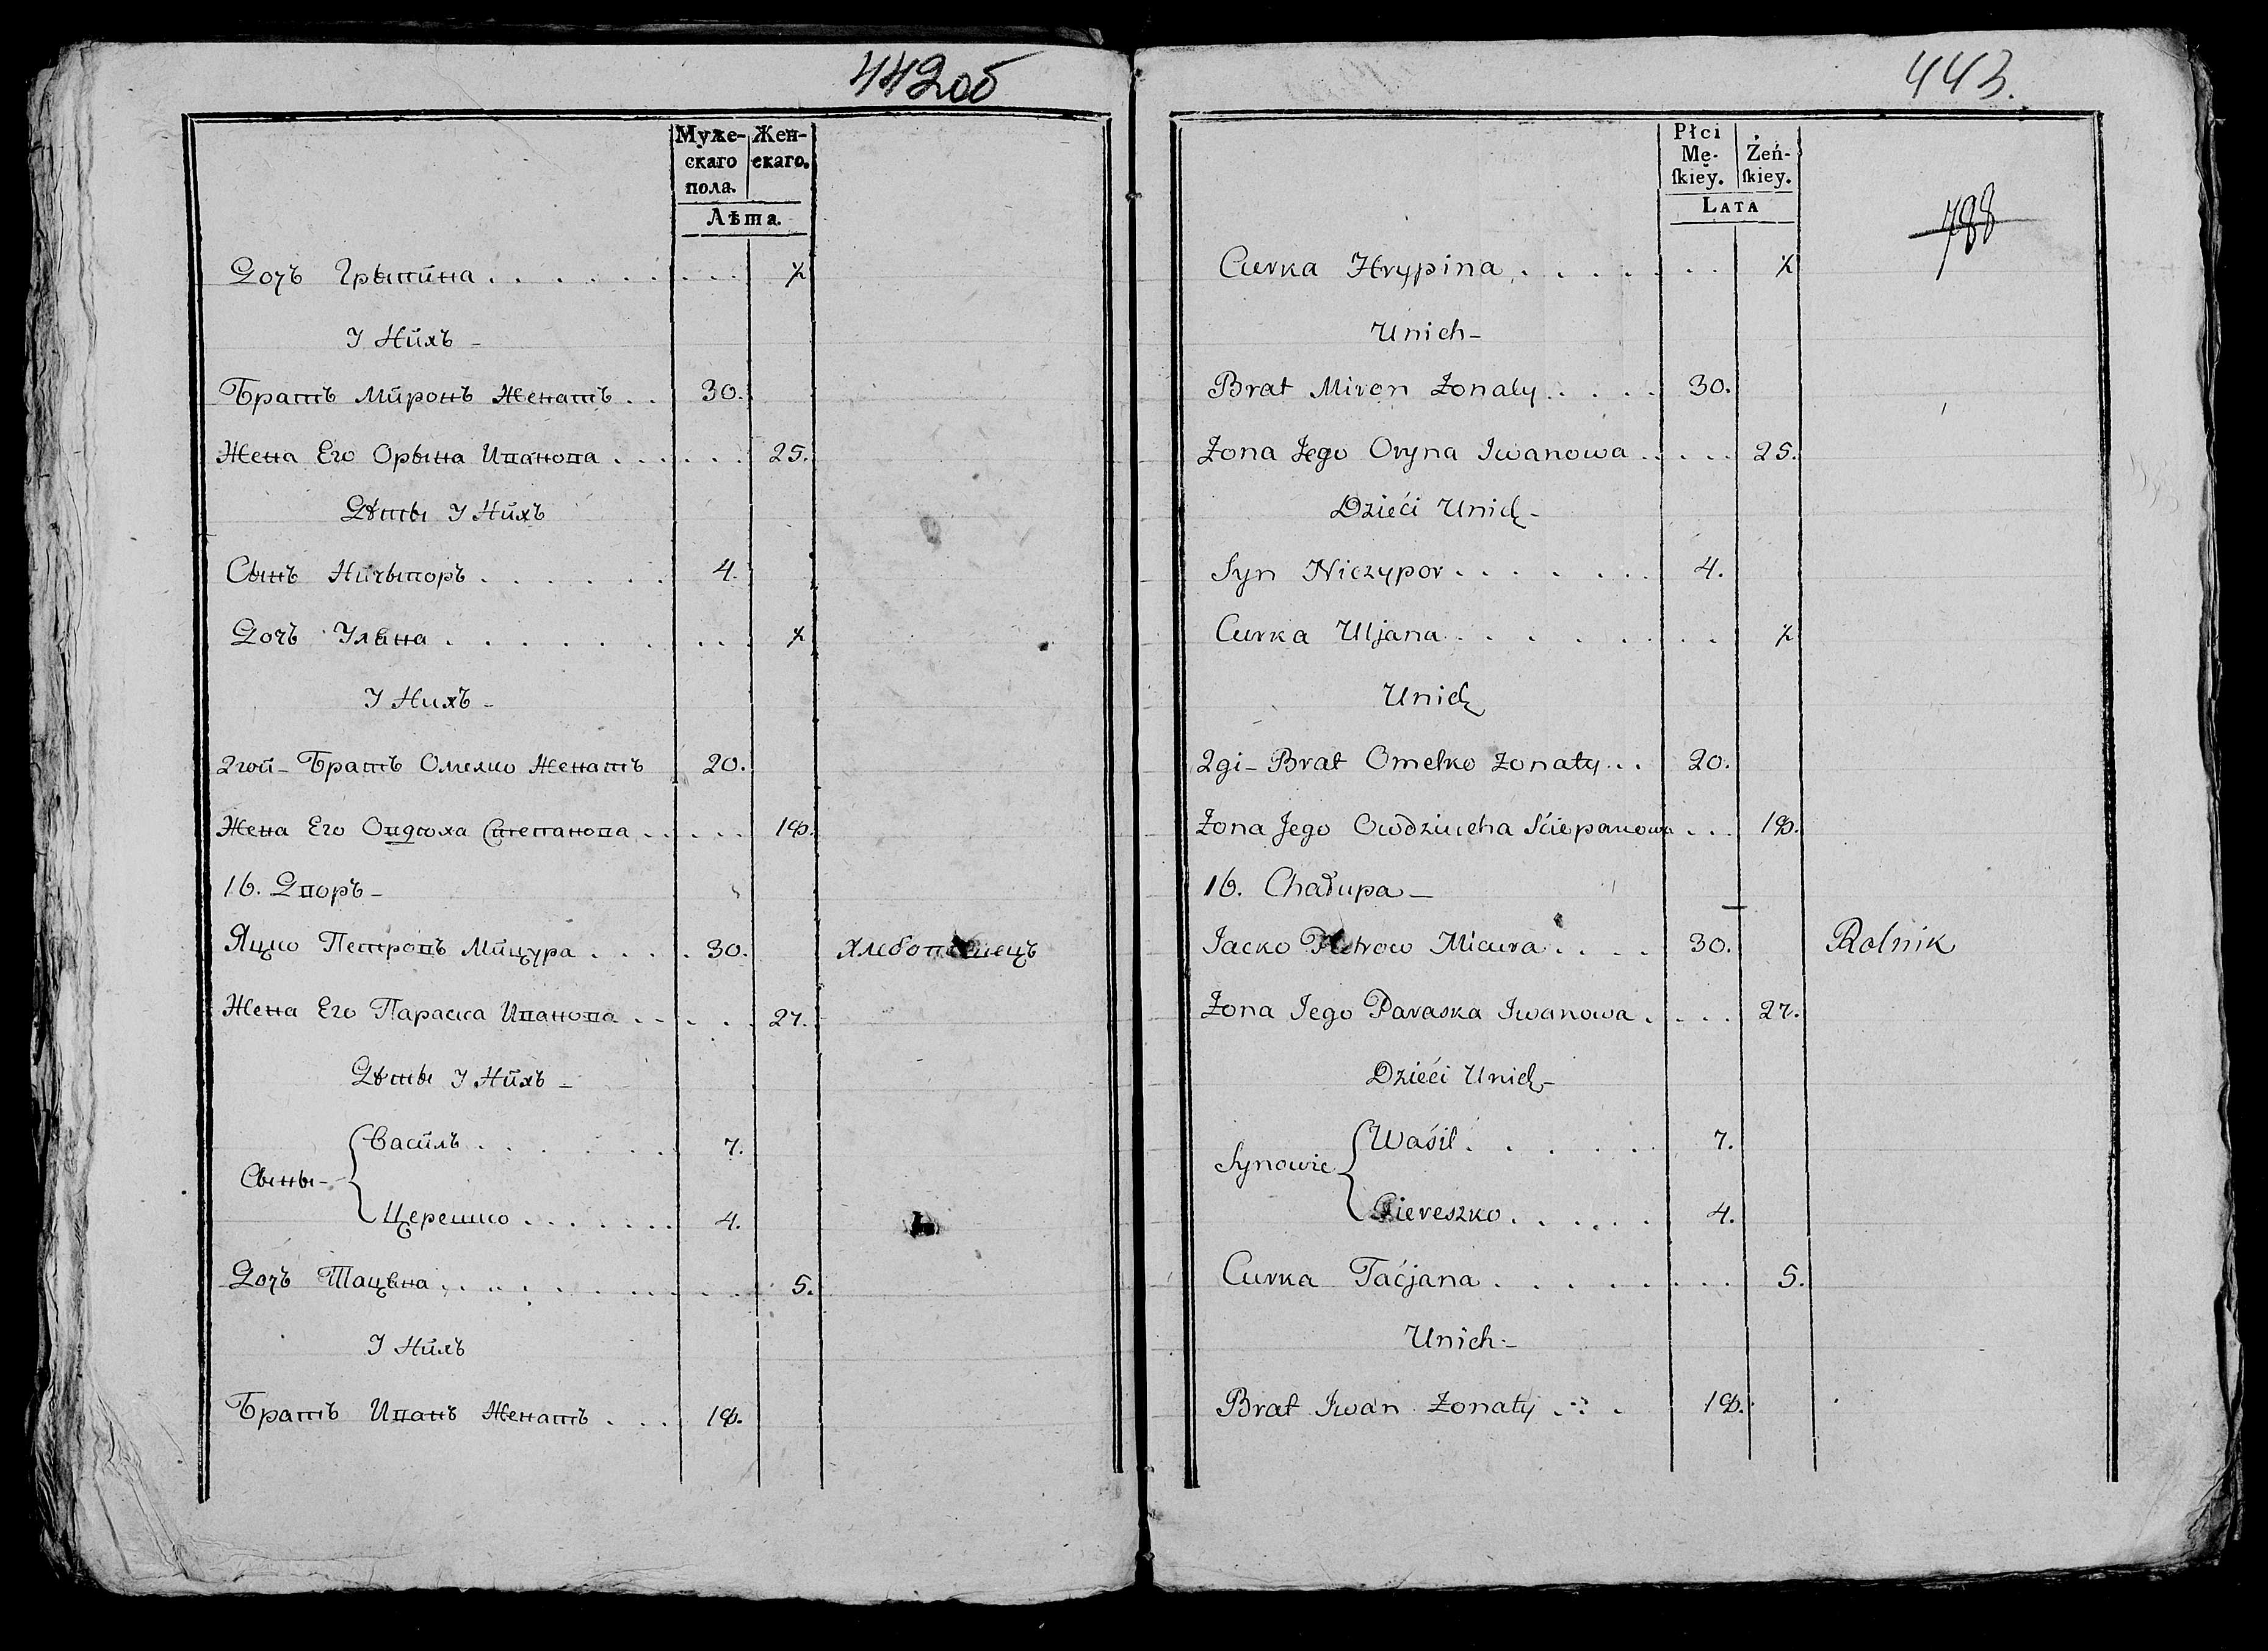 442об
Муже- Жен-
скаго скаго.
пола.
Лѣта.
Дочь Грыпина . . . . . . . . . ½
У Нихъ -
Братъ Миронъ Женатъ . . 30.
Жена Его Орына Иванова . . . . . . 25.
Дѣты У Нихъ
Сынъ Ничыпоръ . . . . . . 4.
Дочъ Уляна . . . . . . . . . ½
У Нихъ -
2гой - Братъ Омелко Женатъ 20.
Жена Его Овдюха Степанова . . . . . 18.
16. Дворъ -
Яцко Петровъ Мицура . . . . 30. Хлебопашецъ
Жена Его Параска Иванова . . . . . 27.
Дѣты У Нихъ -
Василь . . . . . . 7.
Сыны -
Церешко . . . . . . . 4.
Дочъ Тацяна . . . . . . . . . . 5.
У Нихъ
Братъ Иванъ Женатъ . . . 18.
443.
Płci
Mę- Żeń-
skiey. skiey.
LATA
788
Curka Hrypina . . . . . . . ½
Unich -
Brat Miron Żonaty . . . . 30.
Żona Jego Oryna Iwanowa . . . . . 25.
Dzieći Unich -
Syn Niczypor . . . . . . . 4.
Curka Uljana . . . . . . . . ½
Unich
2gi - Brat Omelko żonaty . . 20.
Żona Jego Owdziucha Sciepanowa . . . 18.
16. Chałupa -
Jacko Pietrow Micura . . . . 30. Rolnik
Żona Jego Paraska Iwanowa . . . . 27.
Dzieći Unich -
Waśil . . . . . . 7.
Synowie
Ciereszko . . . . . . 4.
Curka Taćjana . . . . . . . . 5.
Unich -
Brat Iwan Żonaty . . . . 18.